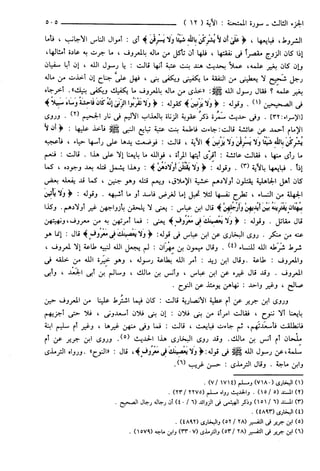 الجزء الثالث - سورة الممتحنة : الآية ( ١٢ )
٥٠٥
الشروط، فبايعها، ﴿ عَلَىٰ أَن لَّا يُشْرِكْنَ بِاللَّهِ شَيْئًا وَلَا يَسْرِقْنَ ﴾ أي : أموال الناس الأجانب ، فأما
إذا كان الزوج مقصراً في نفقتها ، فلها أن تأكل من ماله بالمعروف ، ما جرت به عادة أمثالها،
وإن كان بغير علمه، عملاً بحديث هند بنت عتبة أنها قالت : يا رسول الله ، إن أبا سفيان
رجل شحيح لا يعطيني من النفقة ما يكفيني ويكفي بني ، فهل عليّ جناح إن أخذت من ماله
بغير علمه ؟ فقال رسول الله ﷺ : «خذي من ماله بالمعروف ما يكفيك ويكفي بنيك». أخرجاه
في الصحيحين (١) . وقوله : ﴿ وَلَا يَزْنِينَ ﴾ كقوله : ﴿ وَلَا تَقْرَبُوا الزِّنَىٰ إِنَّهُ كَانَ فَاحِشَةً وَسَاءَ سَبِيلًا ﴾
[الإسراء: ٣٢] . وفي حديث سمرة ذكر عقوبة الزناة بالعذاب الأليم في نار الجحيم (٢) . وروى
الإمام أحمد عن عائشة قالت : جاءت فاطمة بنت عتبة تبايع النبي ﷺ فأخذ عليها : ﴿ أَن لَّا
يُشْرِكْنَ بِاللَّهِ شَيْئًا وَلَا يَسْرِقْنَ وَلَا يَزْنِينَ ﴾ الآية ، قالت : فوضعت يدها على رأسها حياء ، فأعجبه
ما رأى منها ، فقالت عائشة : أقرّي أيتها المرأة ، فوالله ما بايعنا إلا على هذا . قالت : فنعم
إذاً . فبايعها بالآية (٣) . وقوله : ﴿ وَلَا يَقْتُلْنَ أَوْلَادَهُنَّ ﴾ : وهذا يشمل قتله بعد وجوده ، كما
كان أهل الجاهلية يقتلون أولادهم خشية الإملاق، ويعم قتله وهو جنين ، كما قد يفعله بعض
الجهلة من النساء ، تطرح نفسها لئلا تحبل إما لغرض فاسد أو ما أشبهه . وقوله : ﴿ وَلَا يَأْتِينَ
بِبُهْتَانٍ يَفْتَرِينَهُ بَيْنَ أَيْدِيهِنَّ وَأَرْجُلِهِنَّ ﴾ قال ابن عباس : يعني لا يلحقن بأزواجهن غير أولادهم . وكذا
قال مقاتل . وقوله : ﴿ وَلَا يَعْصِينَكَ فِي مَعْرُوفٍ ﴾ يعني : فما أمرتهن به من معروف، ونهيتهن
عنه من منكر . روى البخاري عن ابن عباس في قوله: ﴿ وَلَا يَعْصِينَكَ فِي مَعْرُوفٍ ﴾ قال : إنما هو
شرط شَرَطه الله للنساء (٤) . وقال ميمون بن مهران : لم يجعل الله لنبيه طاعة إلا لمعروف ،
والمعروف : طاعة . وقال ابن زيد : أمر الله بطاعة رسوله ، وهو خيرة الله من خلقه في
المعروف . وقد قال غيره عن ابن عباس ، وأنس بن مالك ، وسالم بن أبي الجعد ، وأبي
صالح ، وغير واحد : نهاهن يومئذ عن النوح .
وروى ابن جرير عن أم عطية الأنصارية قالت : كان فيما اشترط علينا من المعروف حين
بايعنا ألا ننوح ، فقالت امرأة من بني فلان : إن بني فلان أسعدوني ، فلا حتى أجزيهم
فانطلقت فأسعدتهم، ثم جاءت فبايعت ، قالت : فما وفى منهن غيرها ، وغير أم سليم ابنة
ملحان أم أنس بن مالك. وقد روى البخاري هذا الحديث (٥) . وروى ابن جرير عن أم
سلمة، عن رسول الله ﷺ في قوله: ﴿ وَلَا يَعْصِينَكَ فِي مَعْرُوفٍ ﴾، قال : «النوح» . ورواه الترمذي
وابن ماجة . وقال الترمذي : حسن غريب (٦).
(١) البخاري (٧١٨٠) ومسلم (١٧١٤ / ٧) .
(٢) المسند (٥ / ١٥) ، والحديث رواه مسلم (٢٢٧٥ / ٢٣) .
(٣) المسند (٦ / ١٥١) وذكر الهيثمي في الزوائد (٦ / ٤٠) أن رجاله رجال الصحيح .
(٤) البخاري (٤٨٩٣) .
(٥) ابن جرير في التفسير (٢٨ / ٥٢) والبخاري (٤٨٩٢) .
(٦) ابن جرير في التفسير (٢٨ / ٥٣) والترمذي (٣٣٠٧) وابن ماجه (١٥٧٩) .